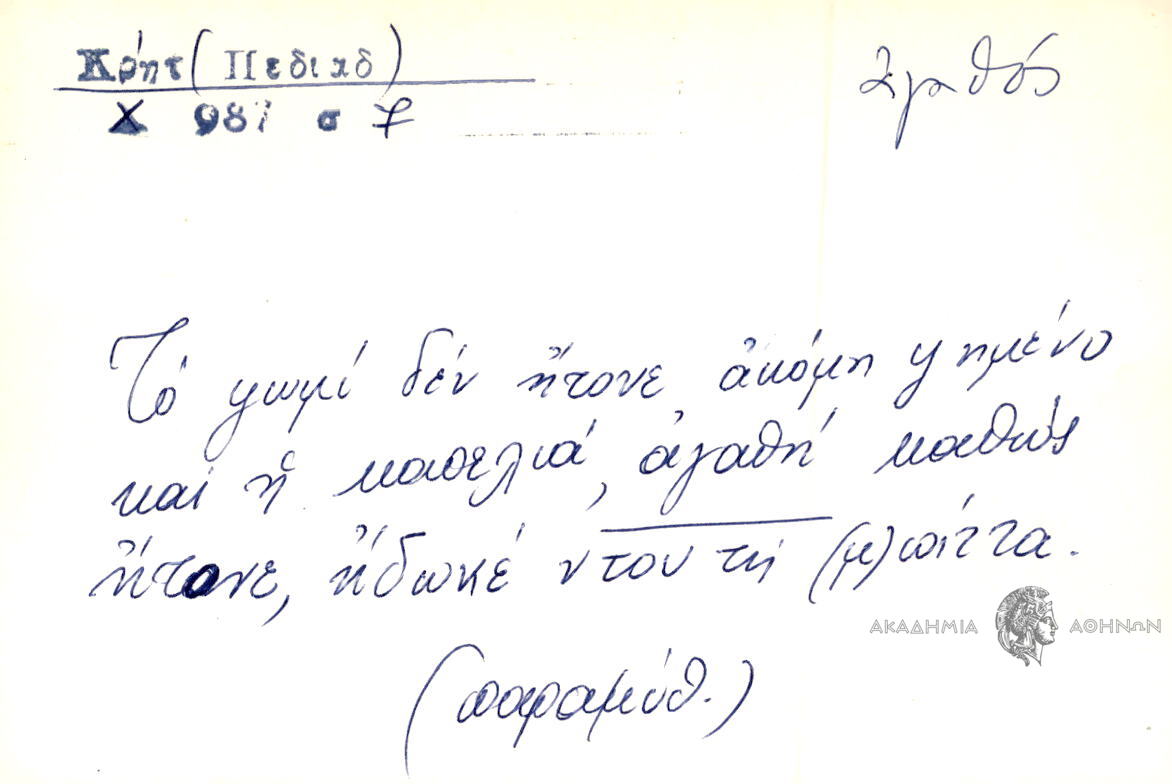 Κρήτ (Πεδιαδ)
Χ 987 σ 7
ἀγαθός
Τό ψωμί δέν ἤτονε ἀκόμη ψημένο
καί ἡ κοπελιά, ἀγαθή καθώς
ἤτονε, ἤδωκέ ντου τή (μ)πίττα.
(παραμύθ.)
ΑΚΑΔΗΜΙΑ ΑΘΗΝΩΝ